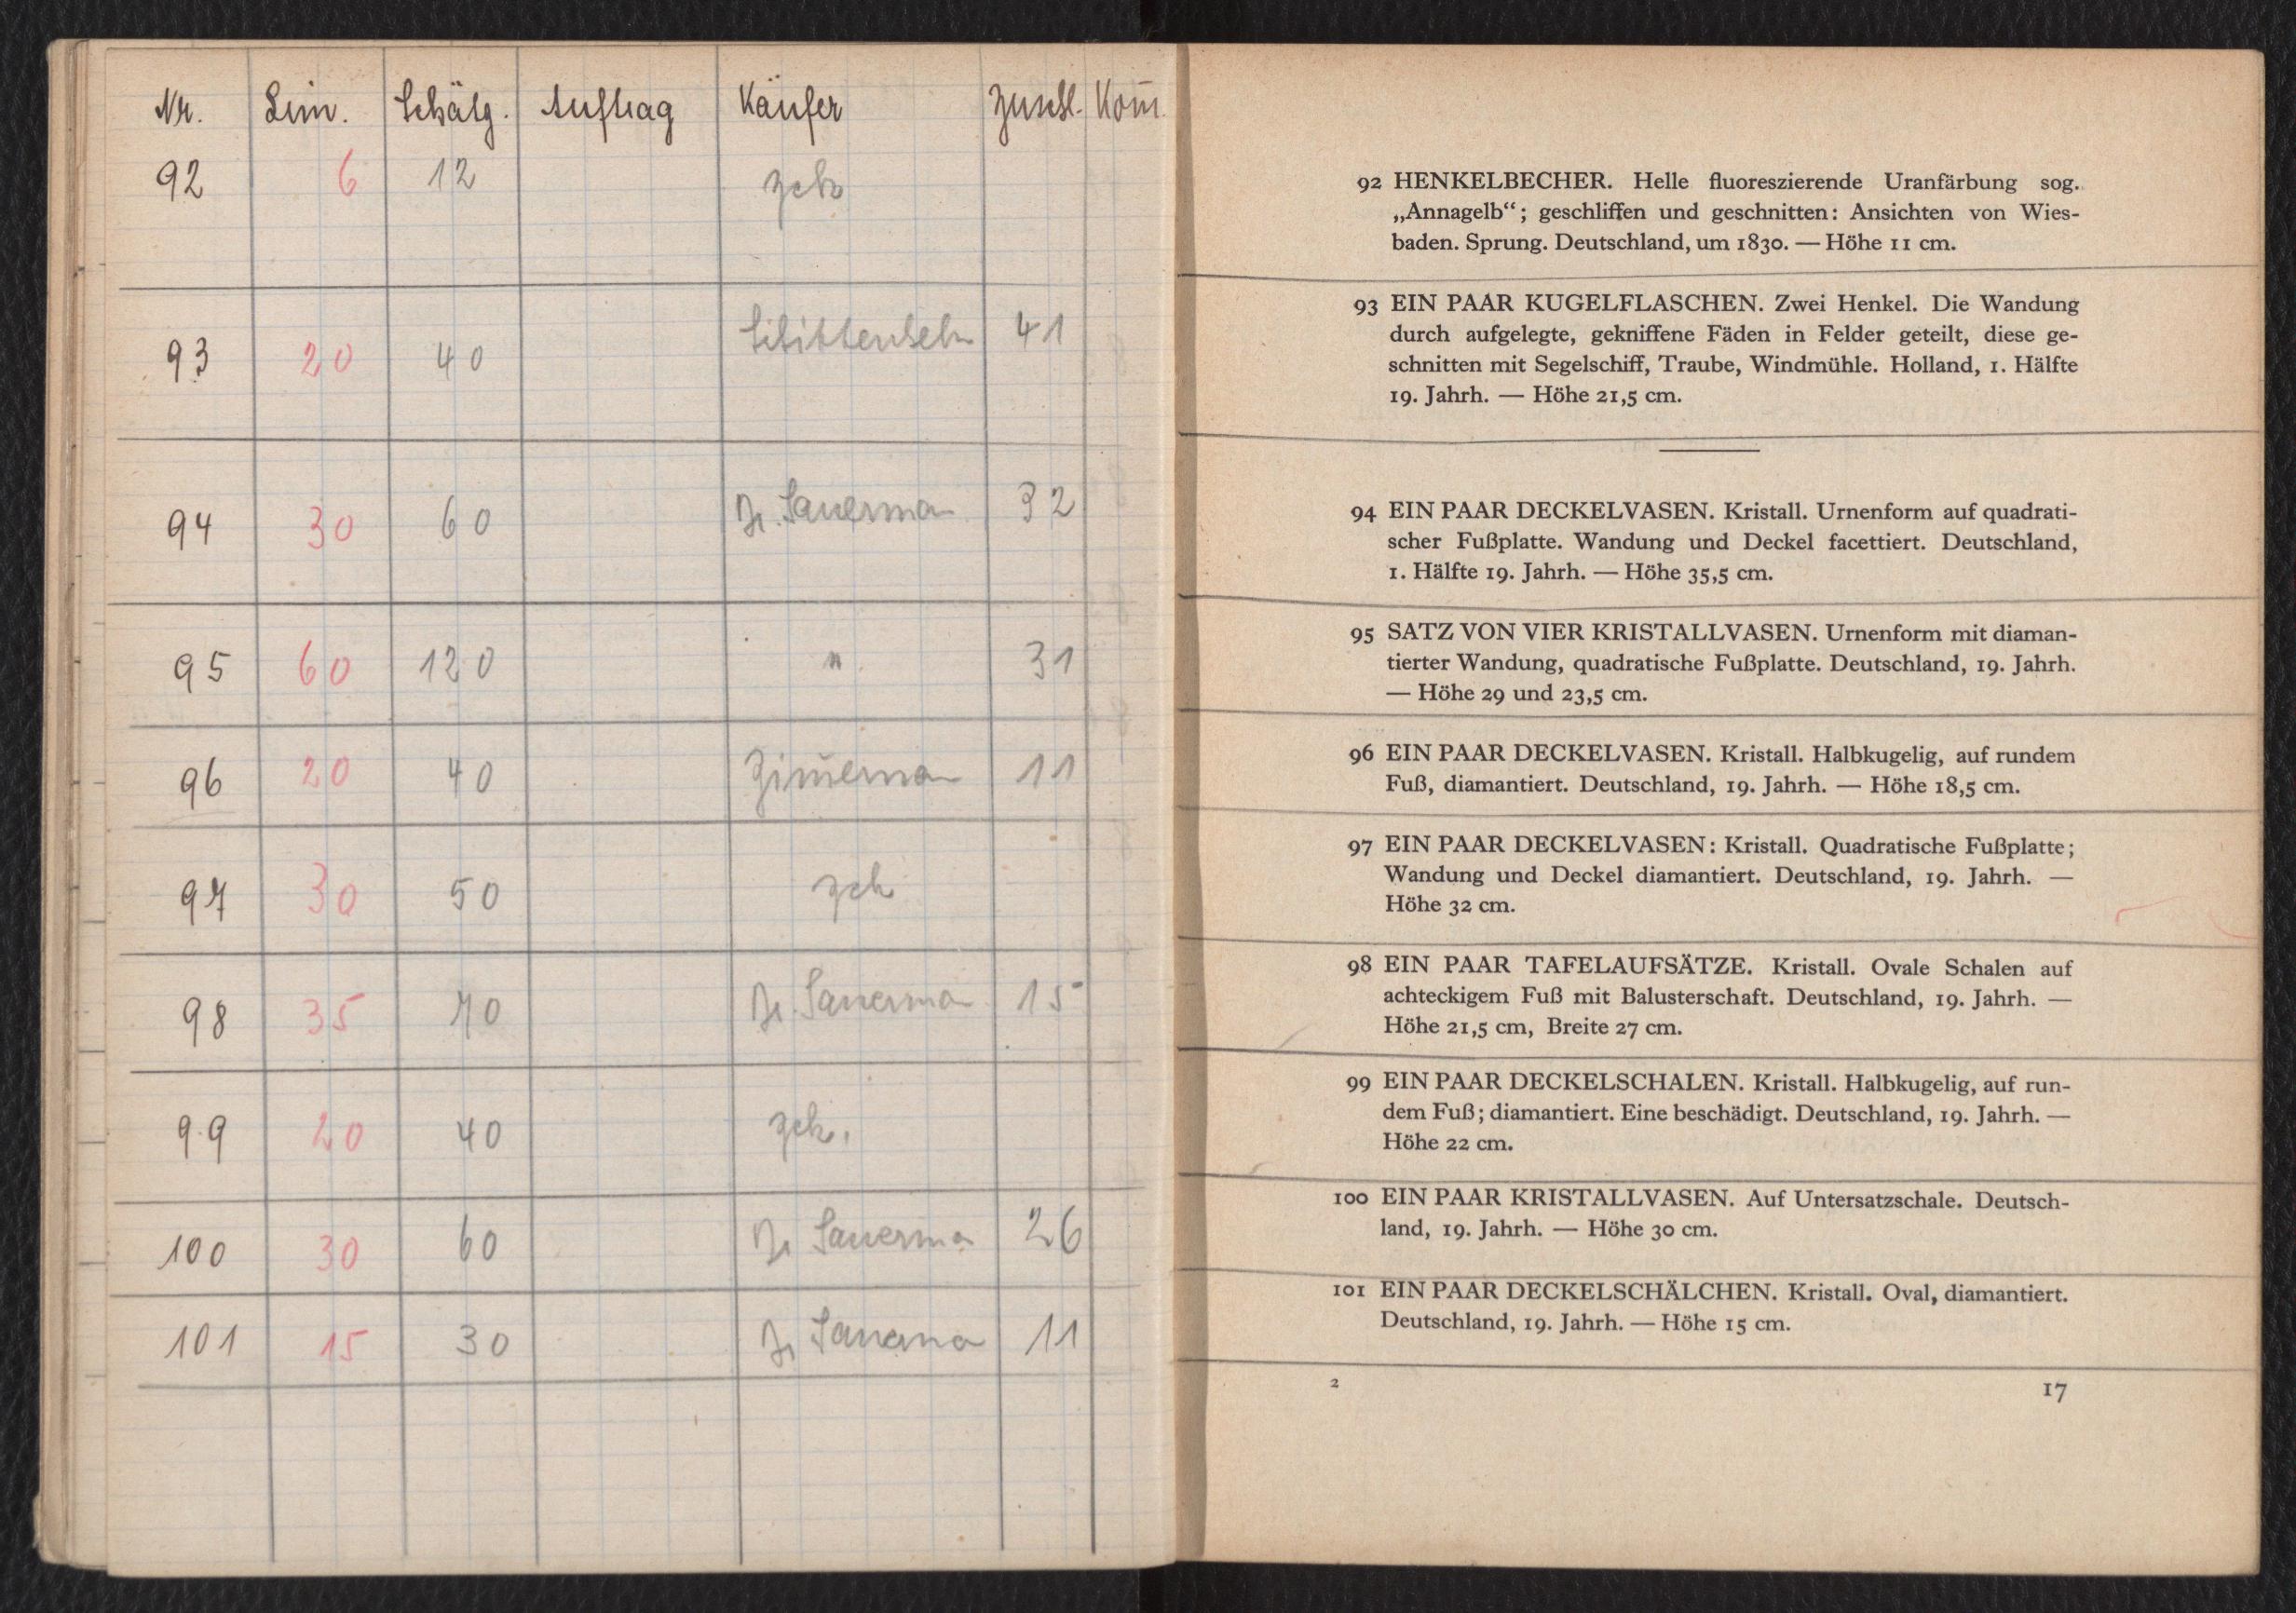 Nr. Lim. Schätz. Auftrag Käufer Zuschl. Kom̄.
92 6 12 zck
93 20 40 41
94 30 60 Dr. Sauerma 32
95 60 120 " 31
96 20 40 Zim̄erma 11
97 30 50 zck
98 35 70 Dr. Sauerma 15
99 20 40 zck.
100 30 60 Dr Sauerma 26
101 15 30 Dr Sauerma 11
92 HENKELBECHER. Helle fluoreszierende Uranfärbung sog.
„Annagelb“; geschliffen und geschnitten: Ansichten von Wies-
baden. Sprung. Deutschland, um 1830. — Höhe 11 cm.
93 EIN PAAR KUGELFLASCHEN. Zwei Henkel. Die Wandung
durch aufgelegte, gekniffene Fäden in Felder geteilt, diese ge-
schnitten mit Segelschiff, Traube, Windmühle. Holland, 1. Hälfte
19. Jahrh. — Höhe 21,5 cm.
94 EIN PAAR DECKELVASEN. Kristall. Urnenform auf quadrati-
scher Fußplatte. Wandung und Deckel facettiert. Deutschland,
1. Hälfte 19. Jahrh. — Höhe 35,5 cm.
95 SATZ VON VIER KRISTALLVASEN. Urnenform mit diaman-
tierter Wandung, quadratische Fußplatte. Deutschland, 19. Jahrh.
— Höhe 29 und 23,5 cm.
96 EIN PAAR DECKELVASEN. Kristall. Halbkugelig, auf rundem
Fuß, diamantiert. Deutschland, 19. Jahrh. — Höhe 18,5 cm.
97 EIN PAAR DECKELVASEN: Kristall. Quadratische Fußplatte;
Wandung und Deckel diamantiert. Deutschland, 19. Jahrh. —
Höhe 32 cm.
98 EIN PAAR TAFELAUFSÄTZE. Kristall. Ovale Schalen auf
achteckigem Fuß mit Balusterschaft. Deutschland, 19. Jahrh. —
Höhe 21,5 cm, Breite 27 cm.
99 EIN PAAR DECKELSCHALEN. Kristall. Halbkugelig, auf run-
dem Fuß; diamantiert. Eine beschädigt. Deutschland, 19. Jahrh. —
Höhe 22 cm.
100 EIN PAAR KRISTALLVASEN. Auf Untersatzschale. Deutsch-
land, 19. Jahrh. — Höhe 30 cm.
101 EIN PAAR DECKELSCHÄLCHEN. Kristall. Oval, diamantiert.
Deutschland, 19. Jahrh. — Höhe 15 cm.
2 17